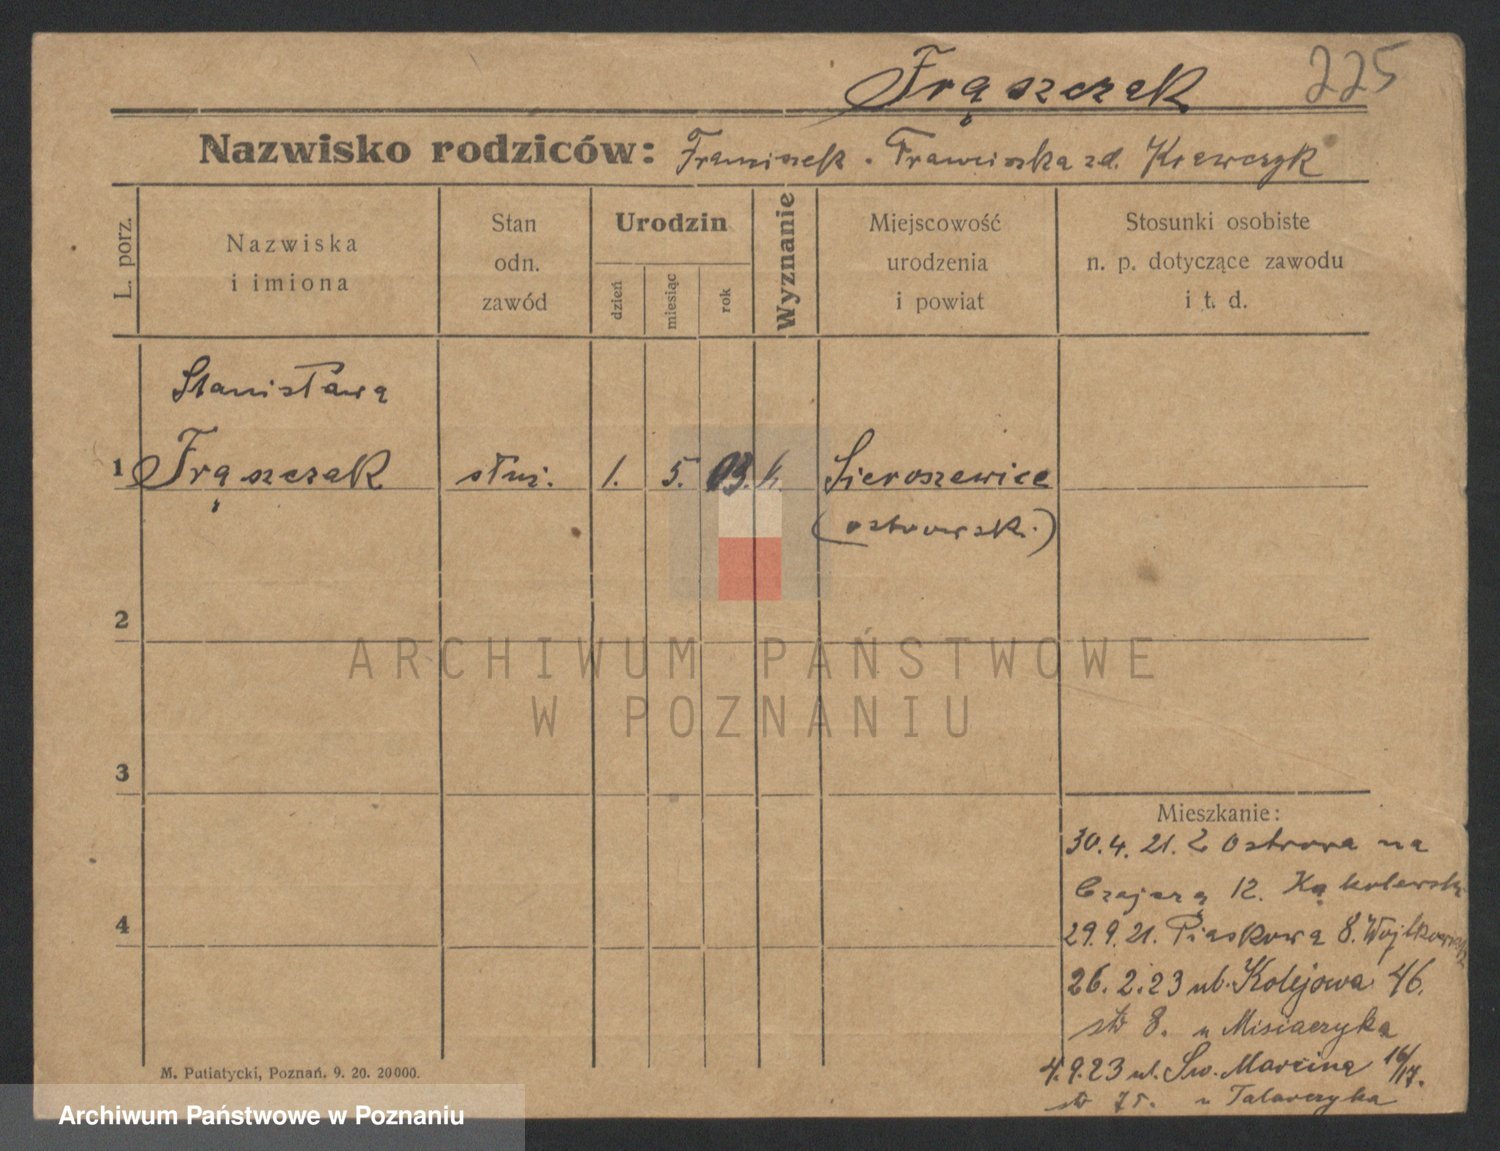 Frąszczak 225
Nazwisko rodziców: Franciszek - Franciszka zd. Krawczyk
L. porz.
Nazwiska
i imiona
Stan
odn.
zawód
Urodzin
dzień
miesiąc
rok
Wyznanie
Miejscowość
urodzenia
i powiat
Stosunki osobiste
n. p. dotyczące zawodu
i t. d.
Stanisława
1 Frąszczak służ. 1. 5. 03. k. Sieroszewice
(ostrowski.)
2
ARCHIWUM PAŃSTWOWE
W POZNANIU
3
4
Mieszkanie:
30.4.21. Z Ostrowa na
12. Kąkolewski
29.9.21. Piaskowa 8.
26.2.23 ul. Kolejowa 46.
8. u Misiaczyka
4.9.23 ul. Św. Marcina 16/17.
u Talarczyka
M. Putiatycki, Poznań. 9. 20. 20000.
Archiwum Państwowe w Poznaniu